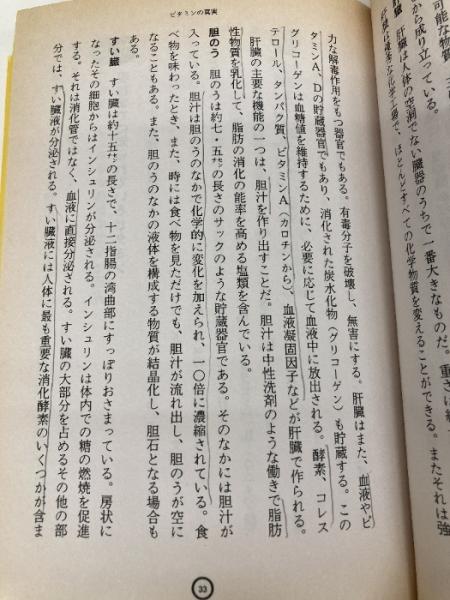 可能な物質
から成り立っている。
肝臓 肝臓は人体の空洞でない臓器のうちで一番大きなものだ。重さは
で、ほとんどすべての化学物質を変えることができる。またそれは強
ビタミンの真実
力な解毒作用をもつ器官でもある。有毒分子を破壊し、無害にする。肝臓はまた、血液やビ
タミンA、Dの貯蔵器官でもあり、消化された炭水化物(グリコーゲン)も貯蔵する。この
グリコーゲンは血糖値を維持するために、必要に応じて血液中に放出される。酵素、コレス
テロール、タンパク質、ビタミンA(カロチンから)、血液凝固因子などが肝臓で作られる。
肝臓の主要な機能の一つは、胆汁を作り出すことだ。胆汁は中性洗剤のような働きで脂肪
性物質を乳化して、脂肪の消化の能率を高める塩類を含んでいる。
胆のう 胆のうは約七・五㌢の長さのサックのような貯蔵器官である。そのなかには胆汁が
入っている。胆汁は胆のうのなかで化学的に変化を加えられ、一〇倍に濃縮されている。食
べ物を味わったとき、また、時には食べ物を見ただけでも、胆汁が流れ出し、胆のうが空に
なることもある。また、胆のうのなかの液体を構成する物質が結晶化し、胆石となる場合も
ある。
すい臓 すい臓は約十五㌢の長さで、十二指腸の湾曲部にすっぽりおさまっている。房状に
なったその細胞からはインシュリンが分泌される。インシュリンは体内での糖の燃焼を促進
する。それは消化管ではなく、血液に直接分泌される。すい臓の大部分を占めるその他の部
分では、すい臓液が分泌される。すい臓液には人体に最も重要な消化酵素のいくつかが含ま
33